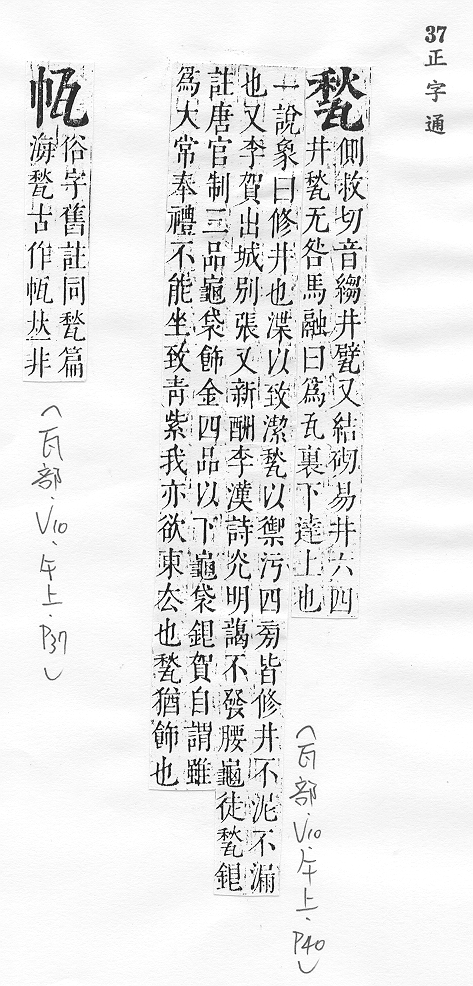 37正字通
甃
側救切音縐井甓又結砌易井六四
井甃无咎馬融曰爲瓦裏下達上也
一說象曰修井也渫以致潔甃以禦污四旁皆修井不泥不漏
也又李賀出城別張又新酬李漢詩光明藹不發腰龜徒甃銀
註唐官制三品龜袋飾金四品以下龜袋銀賀自謂雖
爲大常奉禮不能坐致青紫我亦欲東厺也甃猶飾也
(瓦部.V10.午上.P40)
㼝
俗字舊註同甃篇
海甃古作㼝𠀤非
(瓦部.V10.午上.P37)